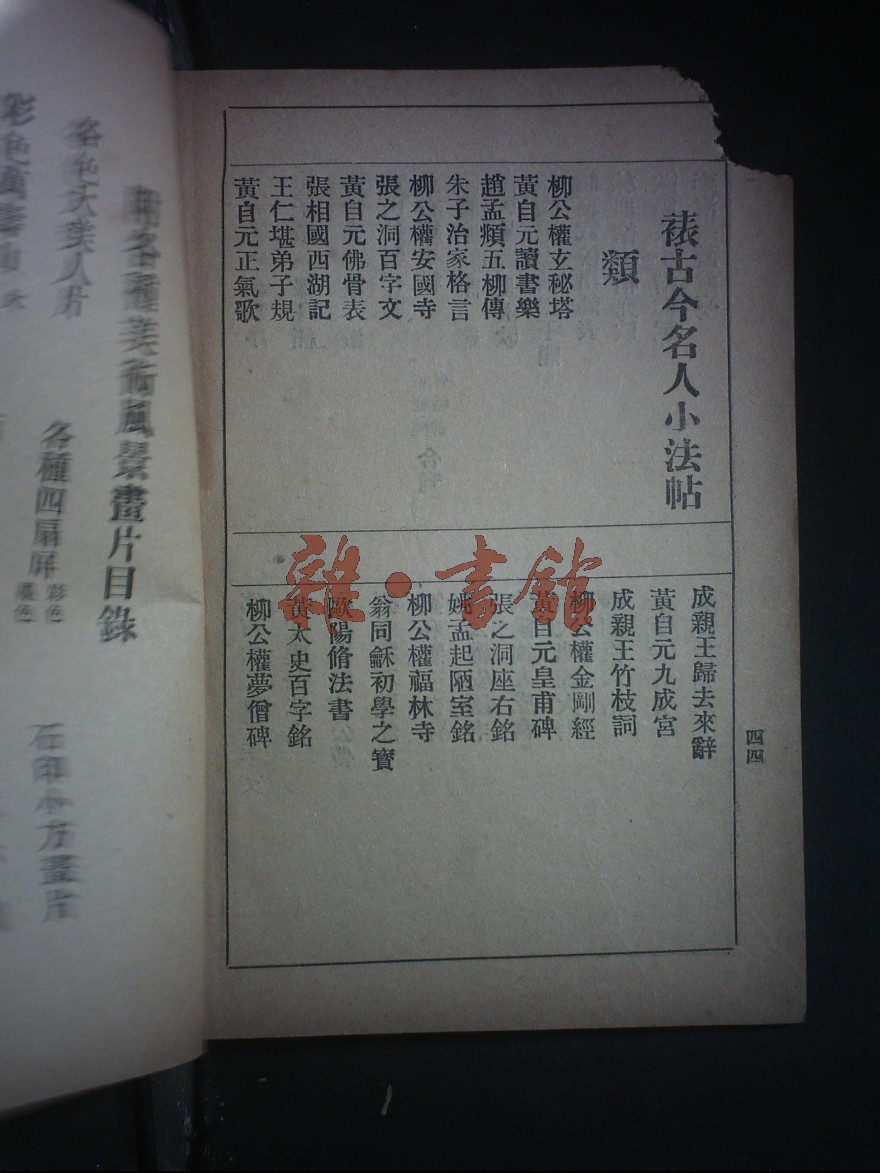 裱古今名人小法帖
類
柳公權玄秘塔
黃自元讀書樂
趙孟頫五柳傳
朱子治家格言
柳公權安國寺
張之洞百字文
黃自元佛骨表
張相國西湖記
王仁堪弟子規
黃自元正氣歌
成親王歸去來辭
黃自元九成宮
成親王竹枝詞
柳公權金剛經
黃自元皇甫碑
張之洞座右銘
姚孟起陋室銘
柳公權福林寺
翁同龢初學之寶
歐陽脩法書
黃太史百字銘
柳公權夢僧碑
四四
雜·書館
各種美術風景畫片目錄
各色大美人片
各種四扇屏
彩色
石印小方畫片